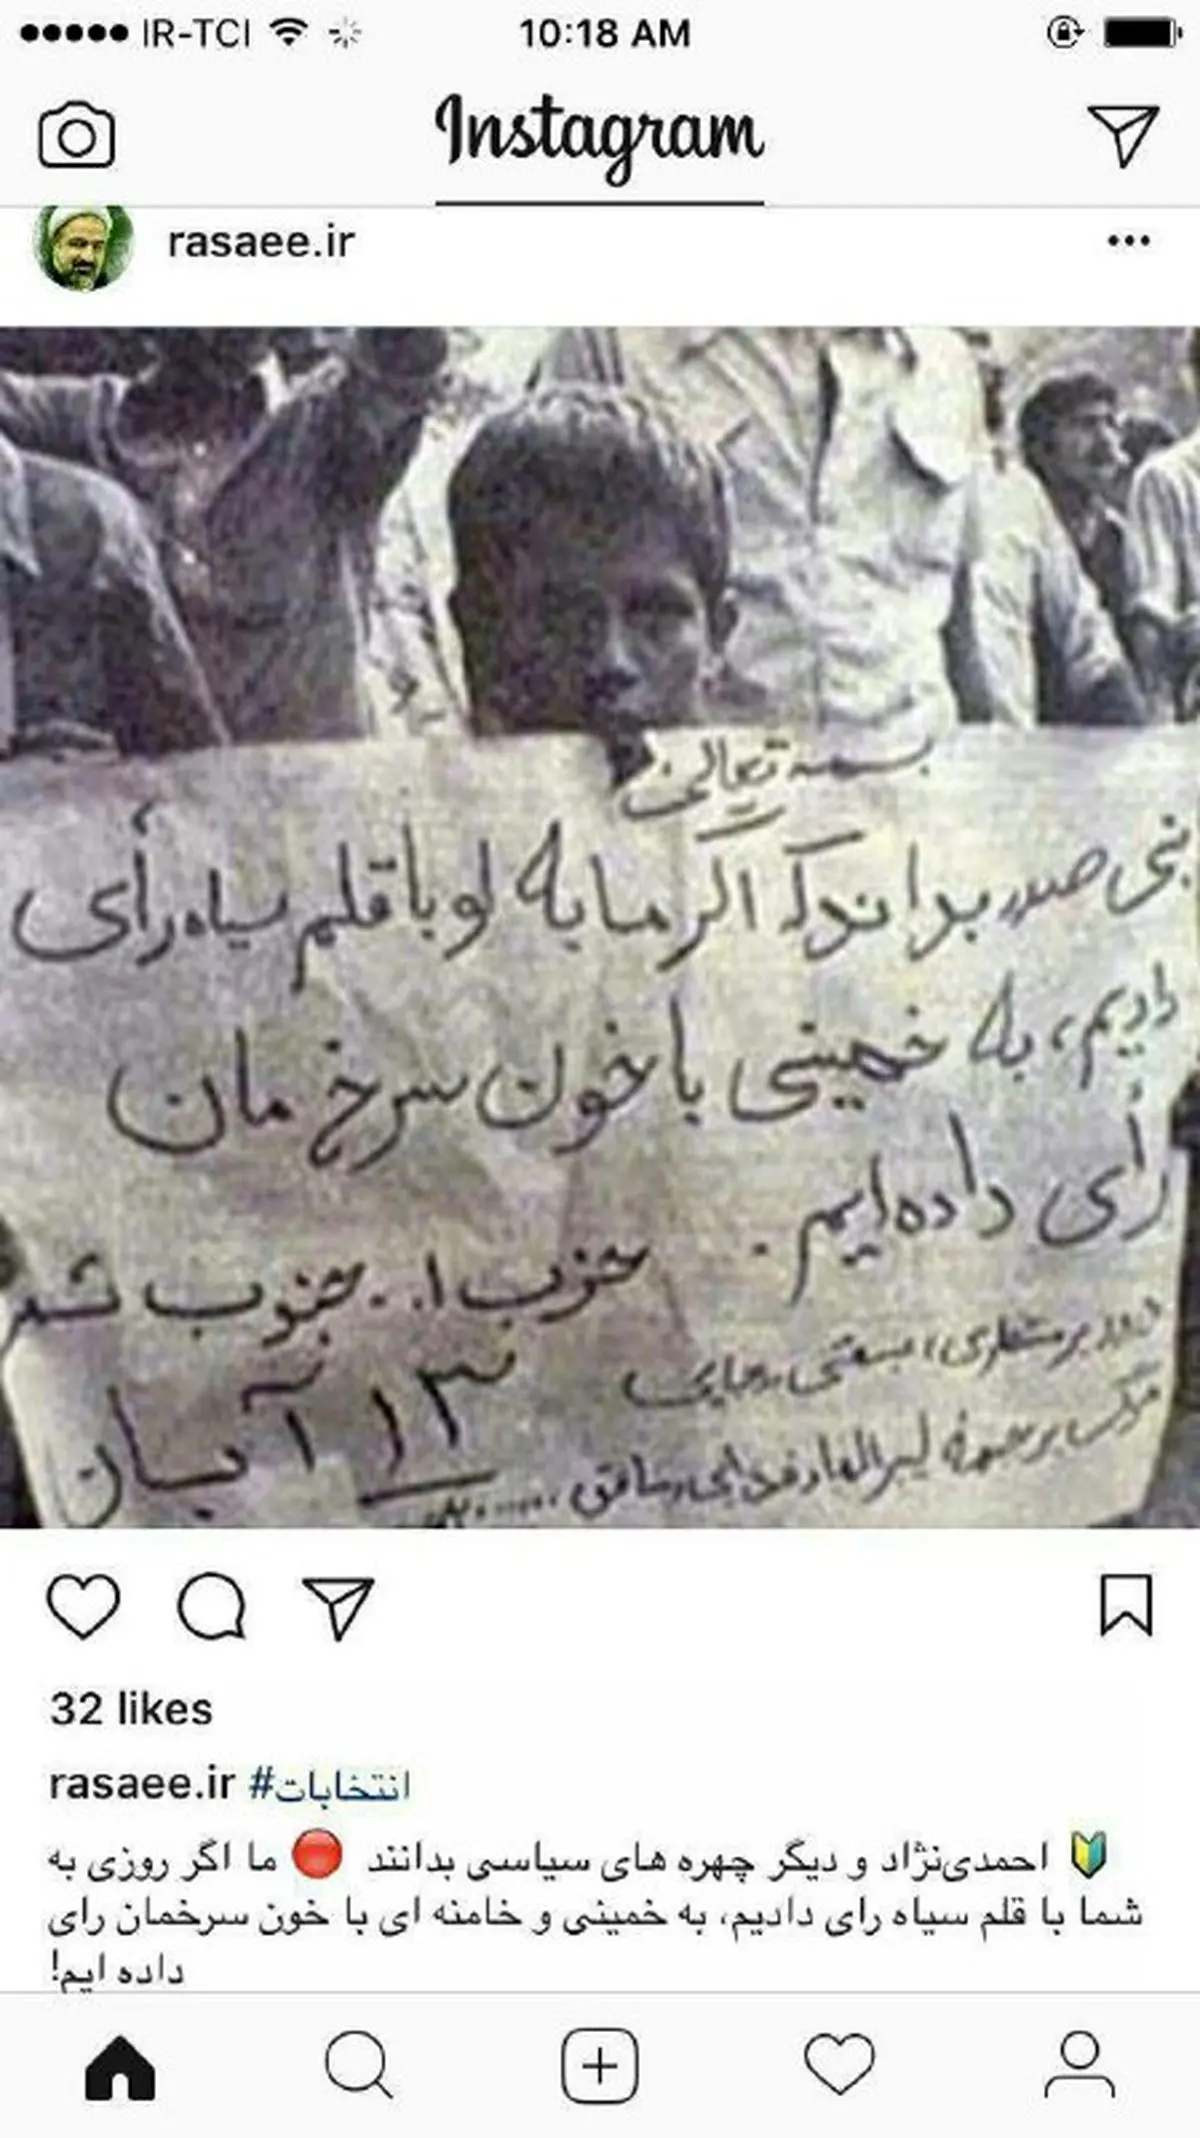 IR-TCI
10:18 AM
Instagram
rasaee.ir
بسمه تعالی
بنی صدر بداند که اگر ما به او با قلم سیاه رأی
دادیم، به خمینی با خون سرخ مان
رأی داده‌ایم.
حزب ا.. جنوب شهر
درود بر منتظری، بهشتی، رجایی
مرگ بر
۱۳ آبان
32 likes
rasaee.ir #انتخابات
🔰 احمدی‌نژاد و دیگر چهره های سیاسی بدانند 🔴 ما اگر روزی به
شما با قلم سیاه رای دادیم، به خمینی و خامنه ای با خون سرخمان رای
داده ایم!